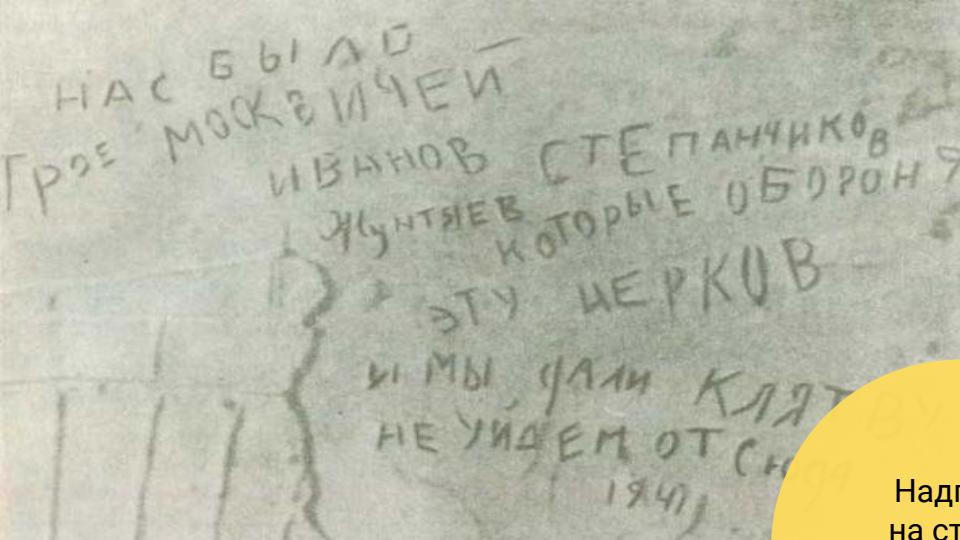 НАС БЫЛО –
Трое МОСКВИЧЕЙ
ИВАНОВ СТЕПАНЧИКОВ
Жунтяев
КОТОРЫЕ ОБОРОНЯ
ЭТУ ЦЕРКОВ
И МЫ ДАЛИ КЛЯТВУ
НЕ УЙДЕМ ОТ Сюда
1941
на ст